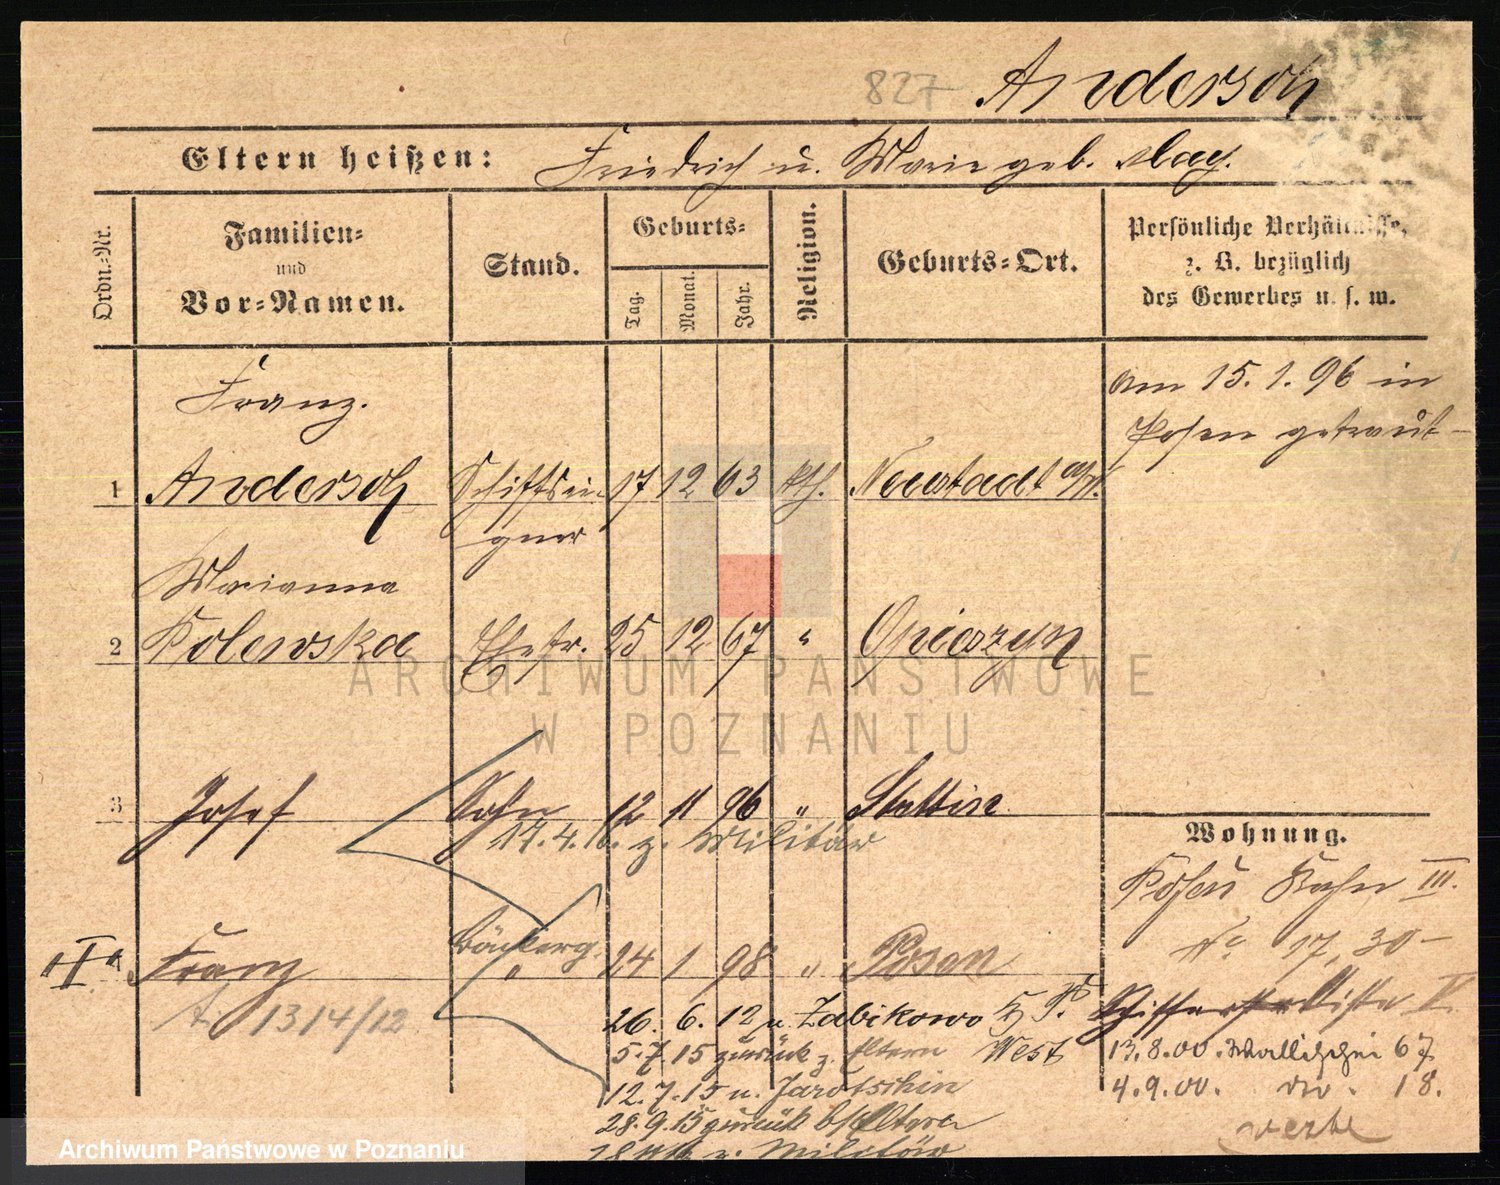 827 Andersch
Eltern heißen: Friedrich u. Marie geb.
Ordn.-Nr.
Familien-
und
Vor-Namen.
Stand.
Geburts-
Tag.
Monat.
Jahr.
Religion.
Geburts-Ort.
Persönliche Verhältnisse,
z. B. bezüglich
des Gewerbes u. s. w.
Franz.
1 Andersch Schiffsei- 17 12 63 kth. Neustadt a/W.
gner
am 15.1.96 in
Posen getraut
Marianna
2 Polewska Ehefr. 25 12 67 " Opieszyn
3 Josef Sohn 12 11 96 " Stettin
z. Militär
Wohnung.
Posen Kahn III.
No 17,30
"I" Franz " 24 1 98 " Posen
1314/12
26. 6. 12 n. Zabikowo
West
5.7.15 zurück z. Eltern
12.7.15 n. Jarotschin
28.9.15 zurück Eltern
z. Militär
V.
13.8.00. Wallischei 67
4.9.00. do. 18.
ARCHIWUM PAŃSTWOWE
W POZNANIU
Archiwum Państwowe w Poznaniu